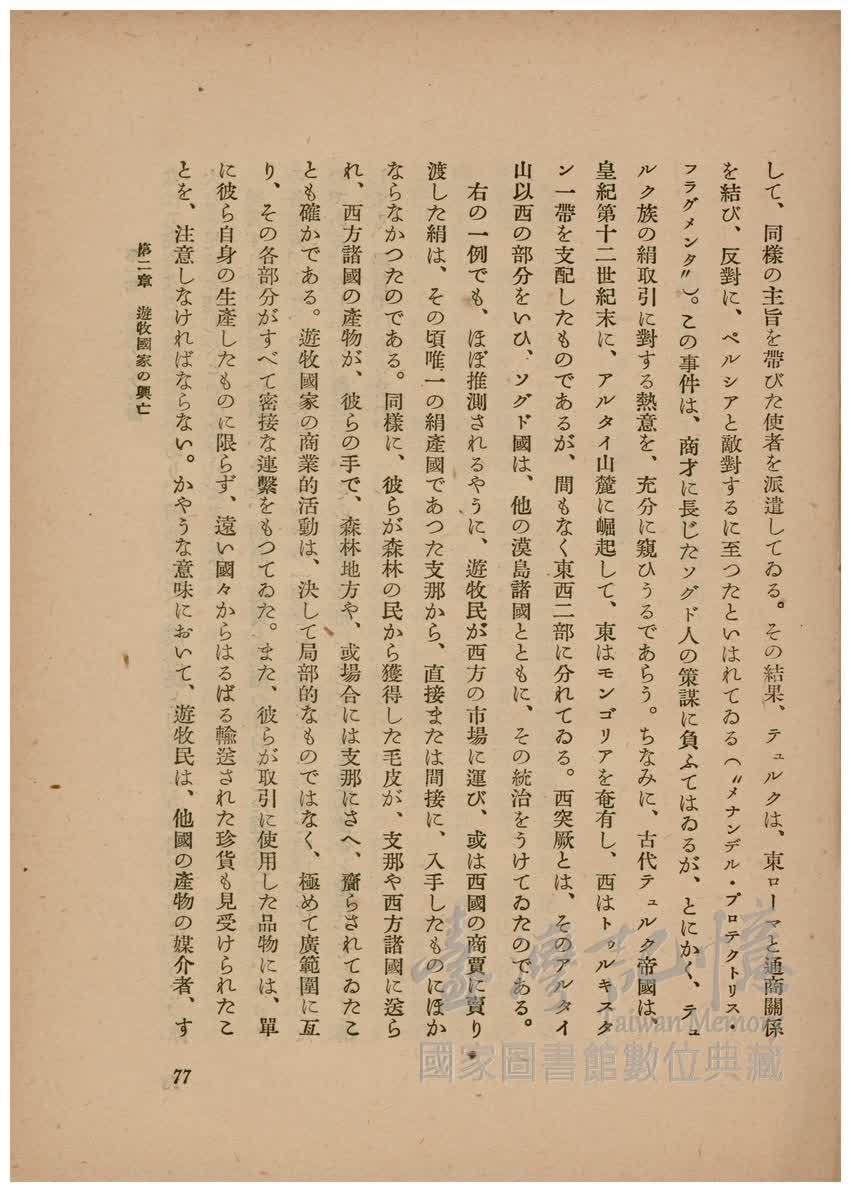 して、同樣の主旨を帶びた使者を派遣してゐる。その結果、テュルクは、東ローマと通商關係
を結び、反對に、ペルシアと敵對するに至つたといはれてゐる（〝メナンデル・プロテクトリス・
フラグメンタ〟）。この事件は、商才に長じたソグド人の策謀に負ふてはゐるが、とにかく、テュ
ルク族の絹取引に對する熱意を、充分に窺ひうるであらう。ちなみに、古代テュルク帝國は、
皇紀第十二世紀末に、アルタイ山麓に崛起して、東はモンゴリアを奄有し、西はトゥルキスタ
ン一帶を支配したものであるが、間もなく東西二部に分れてゐる。西突厥とは、そのアルタイ
山以西の部分をいひ、ソグド國は、他の漠島諸國とともに、その統治をうけてゐたのである。
右の一例でも、ほぼ推測されるやうに、遊牧民が西方の市場に運び、或は西國の商賈に賣り
渡した絹は、その頃唯一の絹產國であつた支那から、直接または間接に、入手したものにほか
ならなかつたのである。同樣に、彼らが森林の民から獲得した毛皮が、支那や西方諸國に送ら
れ、西方諸國の產物が、彼らの手で、森林地方や、或場合には支那にさへ、齎らされてゐたこ
とも確かである。遊牧國家の商業的活動は、決して局部的なものではなく、極めて廣範圍に亙
り、その各部分がすべて密接な連繫をもつてゐた。また、彼らが取引に使用した品物には、單
に彼ら自身の生產したものに限らず、遠い國々からはるばる輸送された珍貨も見受けられたこ
とを、注意しなければならない。かやうな意味において、遊牧民は、他國の產物の媒介者、す
第二章　遊牧國家の興亡
77
臺灣記憶
Taiwan Memory
國家圖書館數位典藏